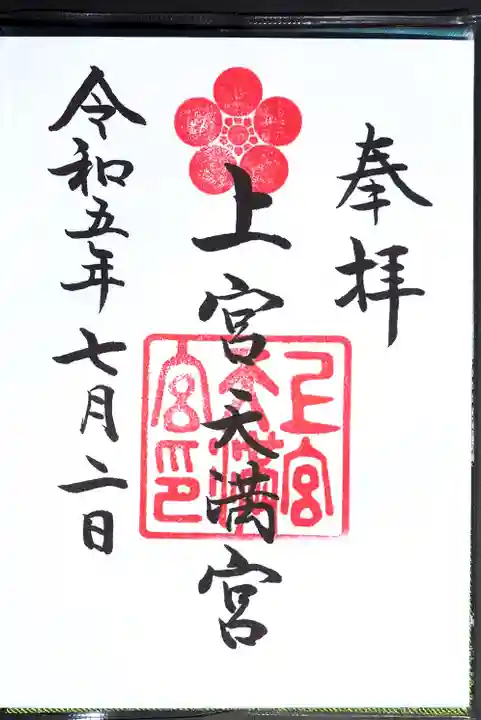 奉拝
上宮天満宮
上宮天満宮印
令和五年七月二日